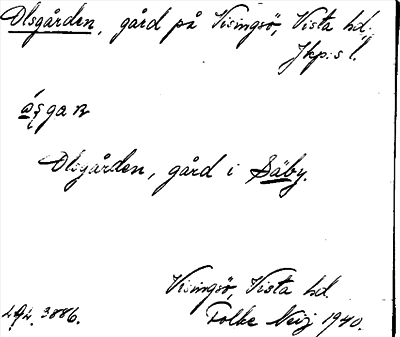 Olsgården, gård på Visingsö, Vista hd,
Jkp:s l.
Olsgården, gård i Säby.
Visingsö, Vista hd.
292. 3886.
Folke Neij 1940.